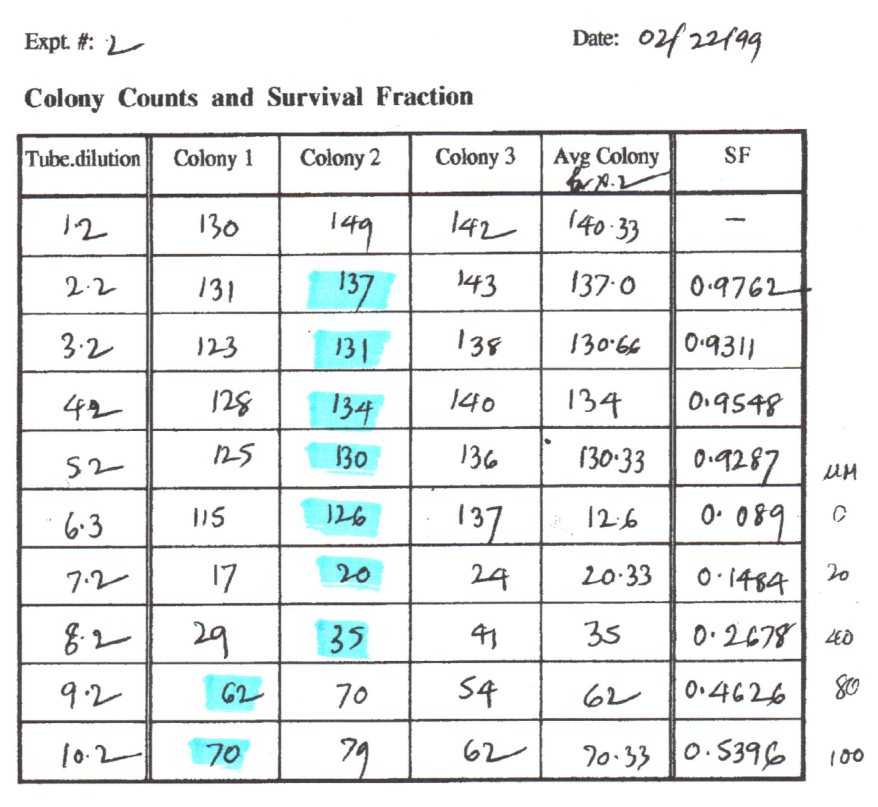 Expt. #: 2 Date: 02/22/99
Colony Counts and Survival Fraction
Tube.dilution Colony 1 Colony 2 Colony 3 Avg Colony SF
for x.2
1.2 130 149 142 140.33 —
2.2 131 137 143 137.0 0.9762
3.2 123 131 138 130.66 0.9311
4.2 128 134 140 134 0.9548
5.2 125 130 136 130.33 0.9287 µM
6.3 115 126 137 12.6 0.089 0
7.2 17 20 24 20.33 0.1484 20
8.2 29 35 41 35 0.2678 40
9.2 62 70 54 62 0.4626 80
10.2 70 79 62 70.33 0.5396 100